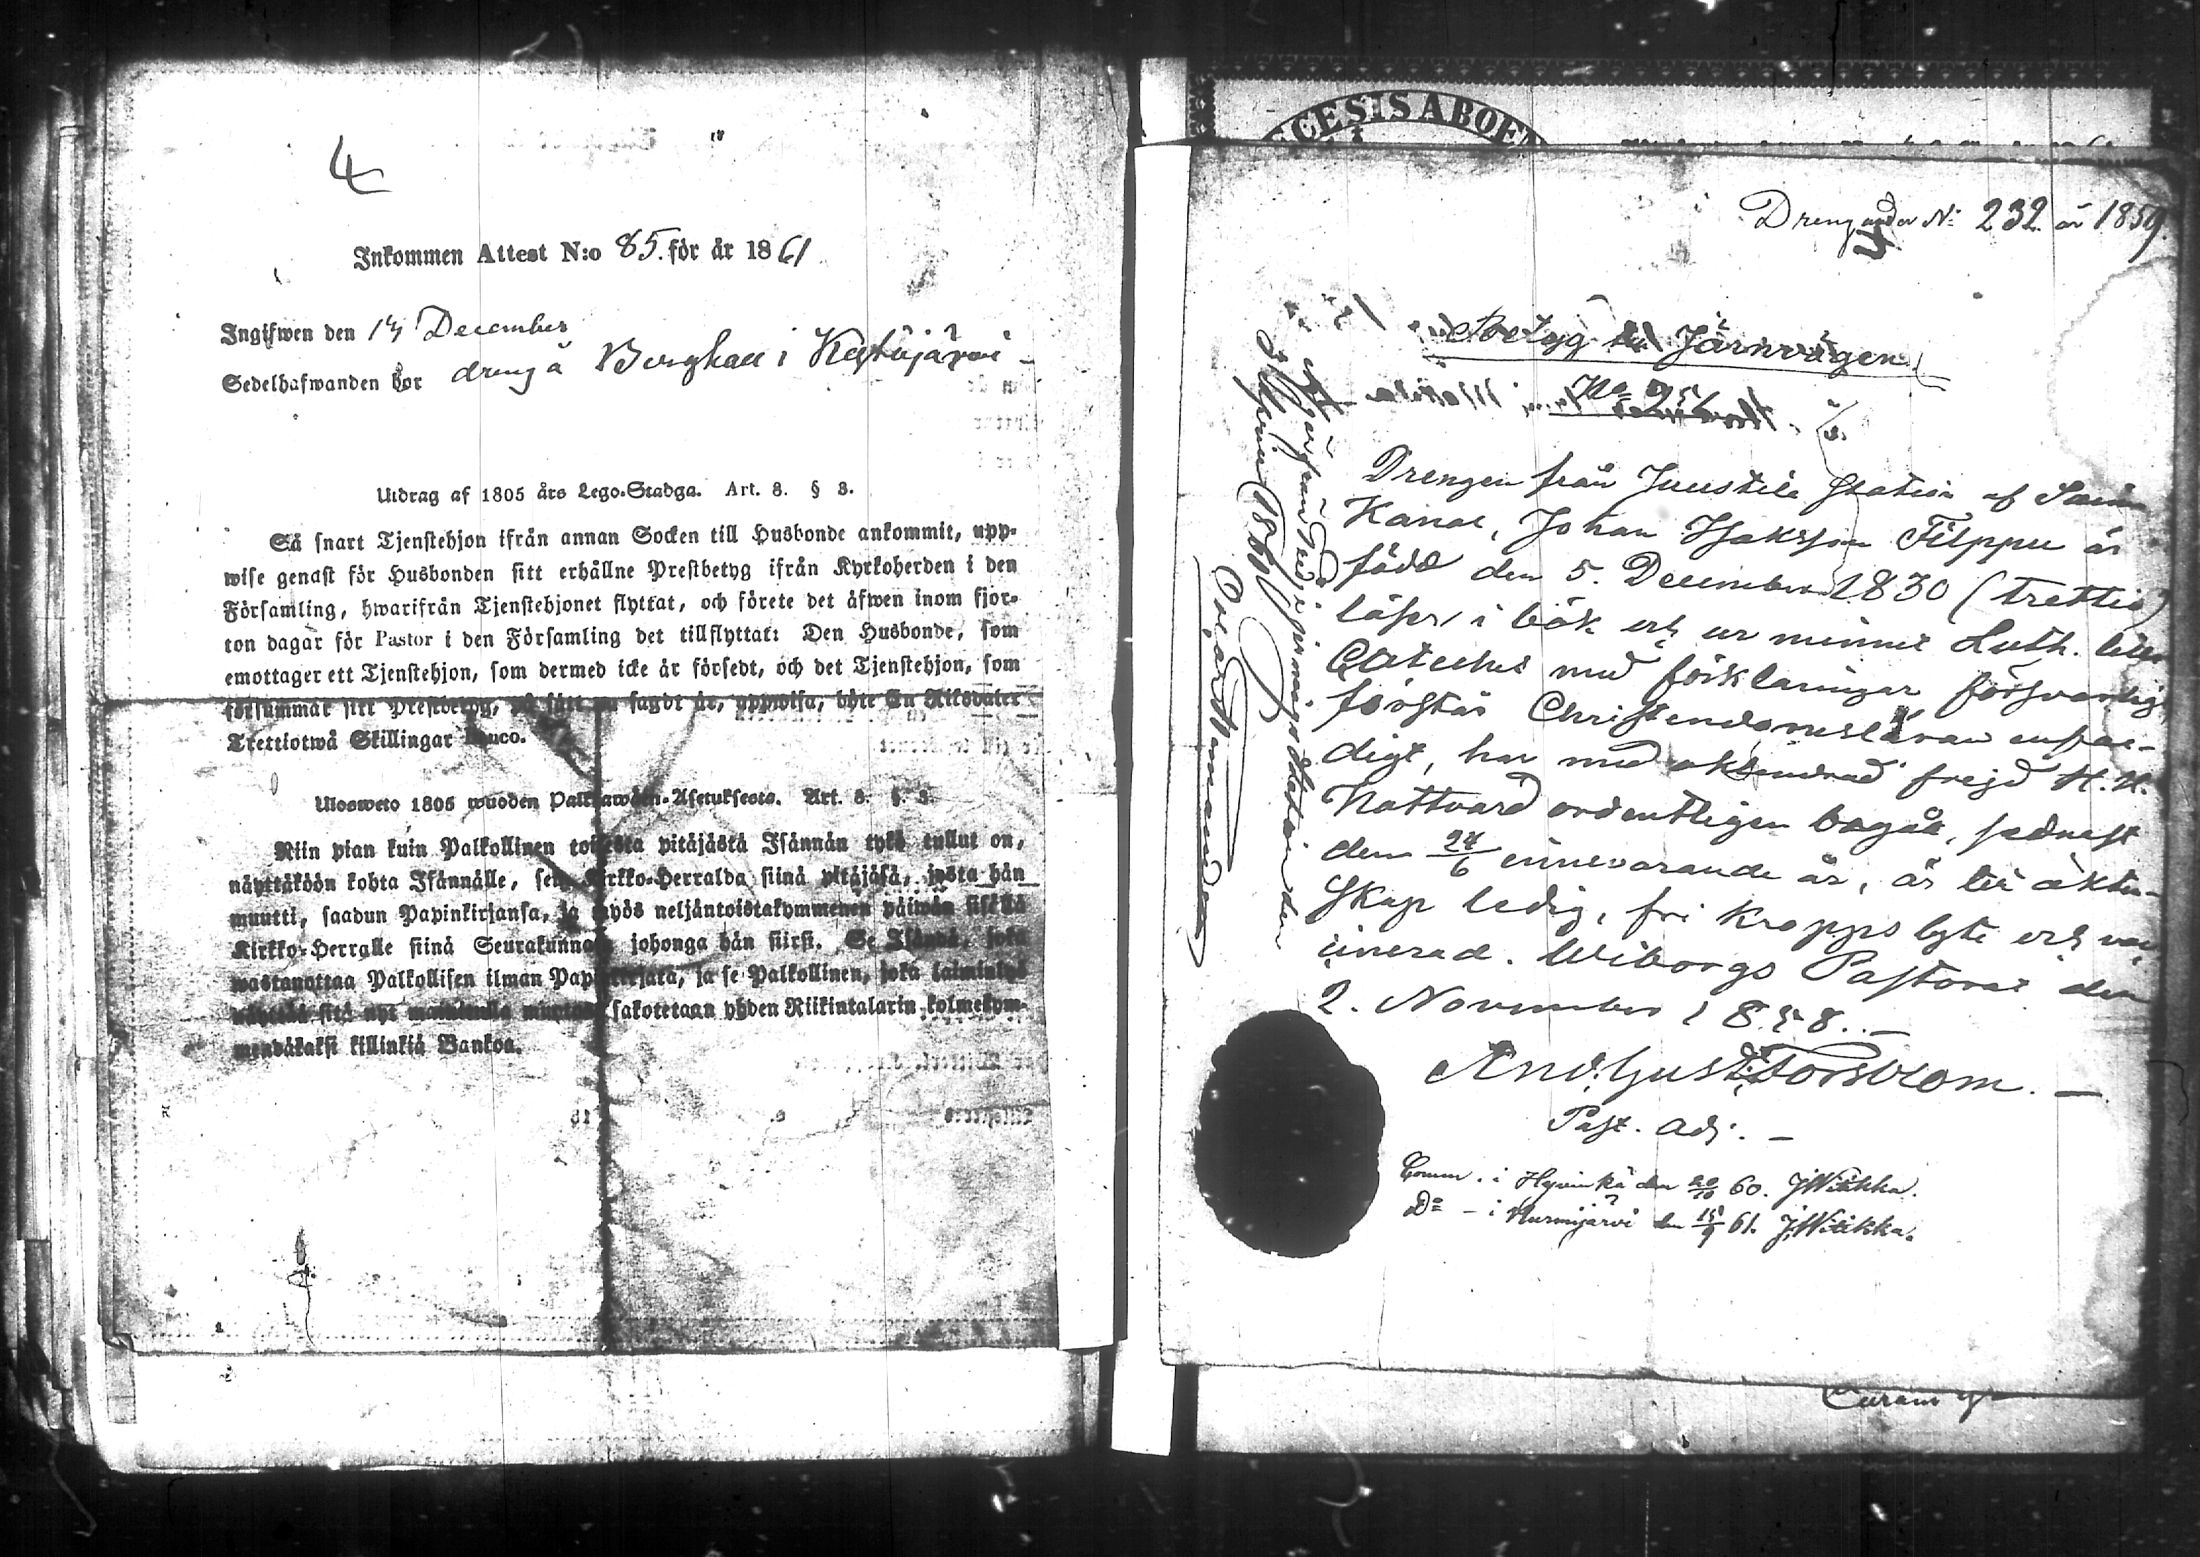 4
Inkommen Attest N:o 85. för år 1861
Ingifwen den 14 December
Sedelhafwanden dräng å Berghall i Kytäjärvi
Utdrag af 1805 års Lego-Stadga. Art. 3. § 3.
Så snart Tjenstehjon ifrån annan Socken till Husbonde ankommit, upp-
wise genast för Husbonden sitt erhållne Prestbetyg ifrån Kyrkoherden i den
Församling, hwarifrån Tjenstehjonet flyttat, och förete det äfwen inom fjor-
ton dagar för Pastor i den Församling det tillflyttat: Den Husbonde, som
emottager ett Tjenstehjon, som dermed icke är försedt, och det Tjenstehjon, som
försummar sitt Prestbetyg, på sätt nu sagdt är, uppwisa, böte En Riksdaler
Trettiotwå Skillingar Banco.
Ulosweto 1805 wuoden Palkkawäen-Asetuksesta. Art. 3. §. 3.
Niin pian kuin Palkollinen toisesta pitäjästä Isännän tykö tullut on,
näyttäköön kohta Isännälle, sen Kirkko-Herralda siinä pitäjäsä, josta hän
muutti, saadun Papinkirjansa, ja myös neljäntoistakymmenen päiwän sisällä
Kirkko-Herralle siinä Seurakunnasa johonga hän siirsi. Se Isändä, joka
wastanottaa Palkollisen ilman Papinkirjata, ja se Palkollinen, joka laiminlyö
näyttää sitä nyt mainitulla muotoa, sakotetaan yhden Riikintalarin kolmekym-
mendäkaksi killinkiä Bankoa.
CESIS ABOE
Dreng under N: 232 år 1859.
Betyg till Järnvägen
No 95
Drengen från Juustila Station af Saima
Kanal, Johan Isaksson Filppu är
född den 5. December 1830 (trettio)
läser i bok och ur minnet Luth. lilla
Cateches med förklaringar försvarligt
förstår Christendomsläran enfal-
digt, har med oklandrad frejd H. H.
Nattvard ordentligen begått, sednast
den 24/6 innevarande år, är till äkten-
skap ledig, fri kropps lyte och vac-
cinerad. Wiborgs Pastorat den
2. November 1858. —
And. Gust. Forsblom. —
Past. adj. —
Comm. i Hyvinkä den 20/10 60. J Witikka.
Do — i Nurmijärvi den 15/9 61. J Witikka.